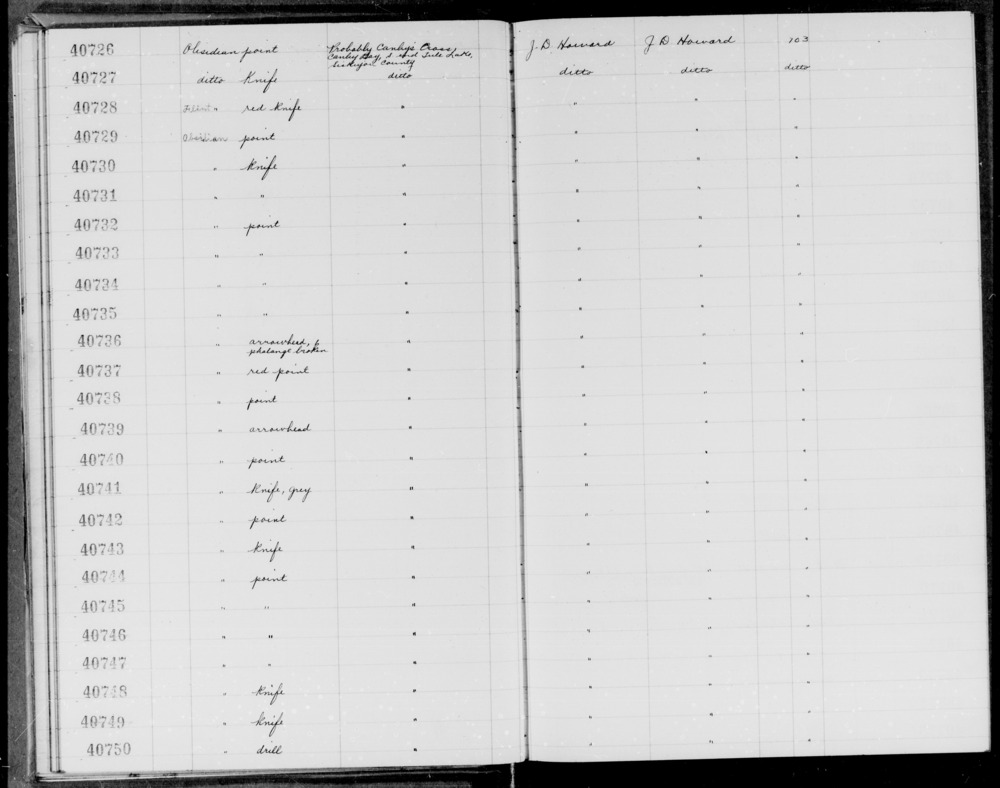 40726 Obsidian point Probably Canby's Cross, J. D Howard J D Howard 103
Canby Bay, S end Tule Lake,
Siskiyou County
40727 ditto Knife ditto ditto ditto ditto
40728 " red Knife " " " "
40729 Obsidian point " " " "
40730 " Knife " " " "
40731 " " " " " "
40732 " point " " " "
40733 " " " " " "
40734 " " " " " "
40735 " " " " " "
40736 " arrowhead, " " " "
phalange broken
40737 " red point " " " "
40738 " point " " " "
40739 " arrowhead " " " "
40740 " point " " " "
40741 " Knife, grey " " " "
40742 " point " " " "
40743 " Knife " " " "
40744 " point " " " "
40745 " " " " " "
40746 " " " " " "
40747 " " " " " "
40748 " Knife " " " "
40749 " Knife " " " "
40750 " drill " " " "